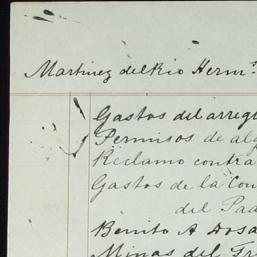 Martinez del Rio Herms.
Gastos del arreg
Permisos de alg
Reclamo contra
Gastos de la Con
del Pad
Benito A Dosa
Minas del Fr